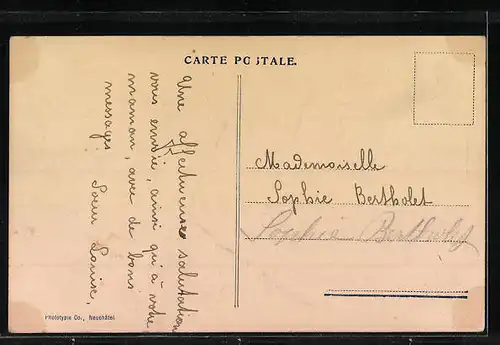 CARTE POSTALE.
Une affectueuse salutation
vous envoie, ainsi qu'à votre
maman, avec de bons
messages
Sœur Louise.
Mademoiselle
Sophie Bertholet
Sophie Bertholet
Phototypie Co., Neuchâtel